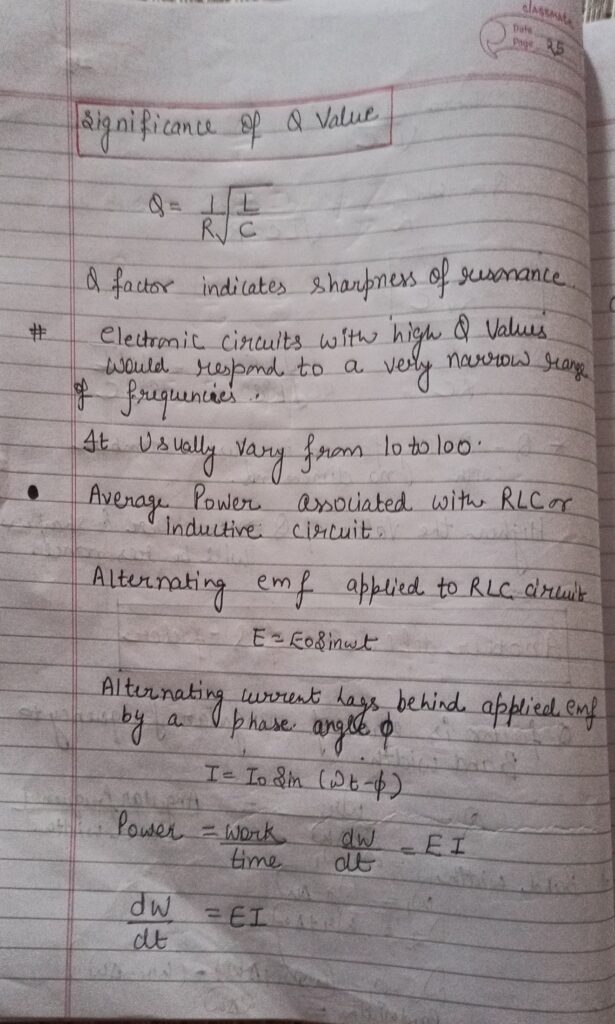 classmate
Date
Page 35
Significance of Q Value
Q = 1/R √L/C
Q factor indicates sharpness of resonance.
# Electronic circuits with high Q Values
would respond to a very narrow range
of frequencies.
It Usually vary from 10 to 100.
• Average Power associated with RLC or
inductive circuit.
Alternating emf applied to RLC circuit
E = E0 Sin wt
Alternating current lags behind applied emf
by a phase angle ϕ
I = I0 Sin (ωt-ϕ)
Power = Work/time dw/dt = EI
dW/dt = EI